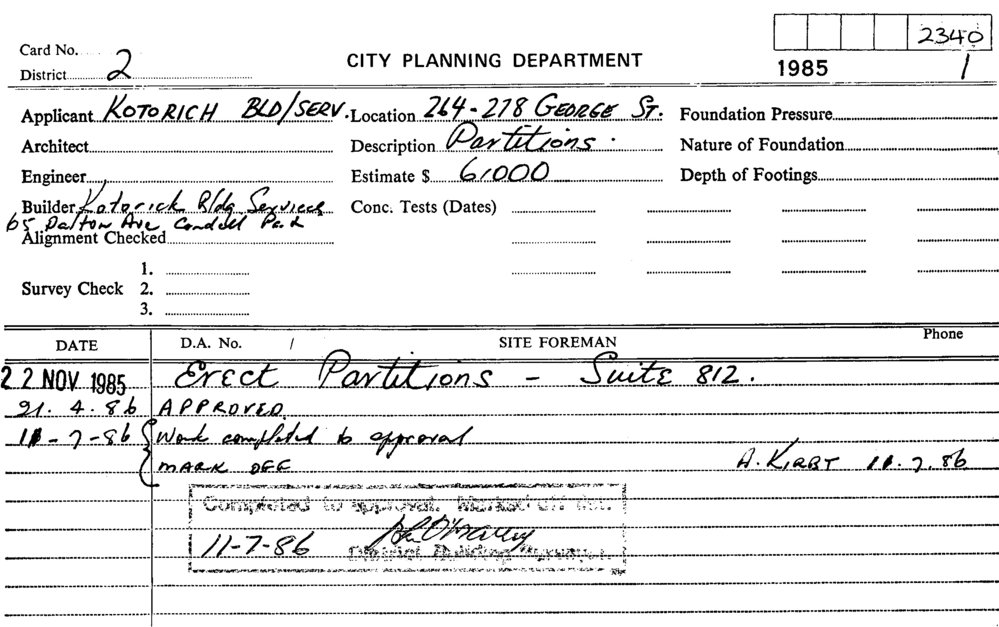 2340
Card No.
District 2
CITY PLANNING DEPARTMENT
1985 1
Applicant KOTORICH BLD/SERV. Location 264-278 GEORGE ST. Foundation Pressure
Architect Description Partitions. Nature of Foundation
Engineer Estimate $ 6,000 Depth of Footings
Builder Kotorick Bldg Services Conc. Tests (Dates)
65 Dalton Ave Condell Park
Alignment Checked
1.
Survey Check 2.
3.
DATE D.A. No. / SITE FOREMAN Phone
22 NOV 1985 Erect Partitions - Suite 812.
21. 4. 86 APPROVED.
11-7-86 Work completed to approval
MARK OFF A. KIRBY 11.7.86
Completed to approval. Marked off list.
11-7-86
District Building Surveyor.